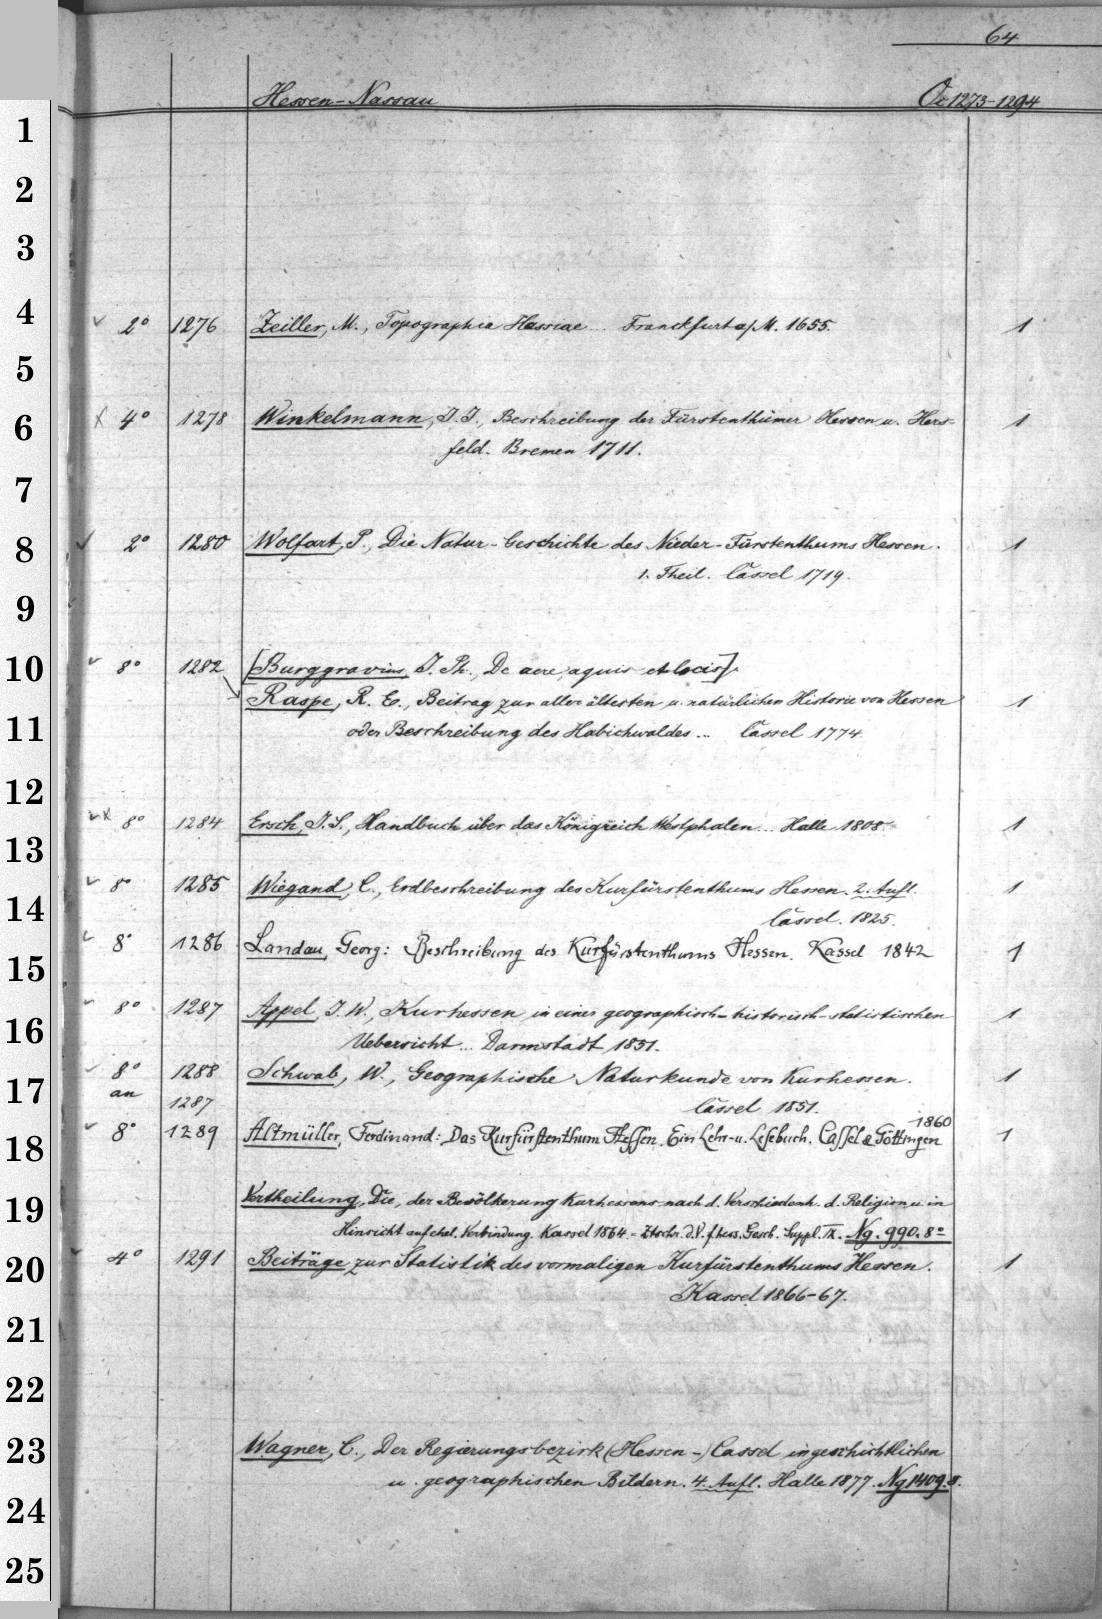 64
Hessen-Nassau Oc 1273-1294
1
2
3
4 2° 1276 Zeiller, M., Topographia Hassiae... Franckfurt a/M. 1655. 1
5
6 4° 1278 Winkelmann, J. J., Beschreibung der Fürstenthümer Hessen u. Hers=
feld. Bremen 1711. 1
7
8 2° 1280 Wolfart, P., Die Natur-Geschichte des Nieder-Fürstenthums Hessen. 1
1. Theil. Cassel 1719.
9
10 8° 1282 [Burggravius, J. Ph., De aere, aquis et locis].
Raspe, R. E., Beitrag zur aller ältesten u. natürlichen Historie von Hessen 1
11 oder Beschreibung des Habichwaldes... Cassel 1774.
12
8° 1284 Ersch, J. S., Handbuch über das Königreich Westphalen... Halle 1808. 1
13
8° 1285 Wiegand, C., Erdbeschreibung des Kurfürstenthums Hessen. 2. Aufl. 1
14 Cassel. 1825.
8° 1286 Landau, Georg: Beschreibung des Kurfürstenthums Hessen. Kassel 1842 1
15
8° 1287 Appel, J. W., Kurhessen in einer geographisch-historisch-statistischen 1
16 Uebersicht... Darmstadt 1851.
8° 1288 Schwab, W., Geographische Naturkunde von Kurhessen. 1
17 an 1287 Cassel 1851.
1860
18 8° 1289 Altmüller, Ferdinand: Das Kurfürstenthum Hessen. Ein Lehr- u. Lesebuch. Cassel & Göttingen 1
19 Vertheilung, Die, der Bevölkerung Kurhessens nach d. Verschiedenh. d. Religion u. in
Hinsicht auf ehel. Verbindung. Kassel 1864. - Ztschr. d. V. f. hess. Gesch. Suppl. IX. Ng. 990. 8°
20 4° 1291 Beiträge zur Statistik des vormaligen Kurfürstenthums Hessen. 1
Kassel 1866-67.
21
22
23 Wagner, C., Der Regierungsbezirk (Hessen-) Cassel in geschichtlichen
u. geographischen Bildern. 4. Aufl. Halle 1877. Ng 1409. 8.
24
25